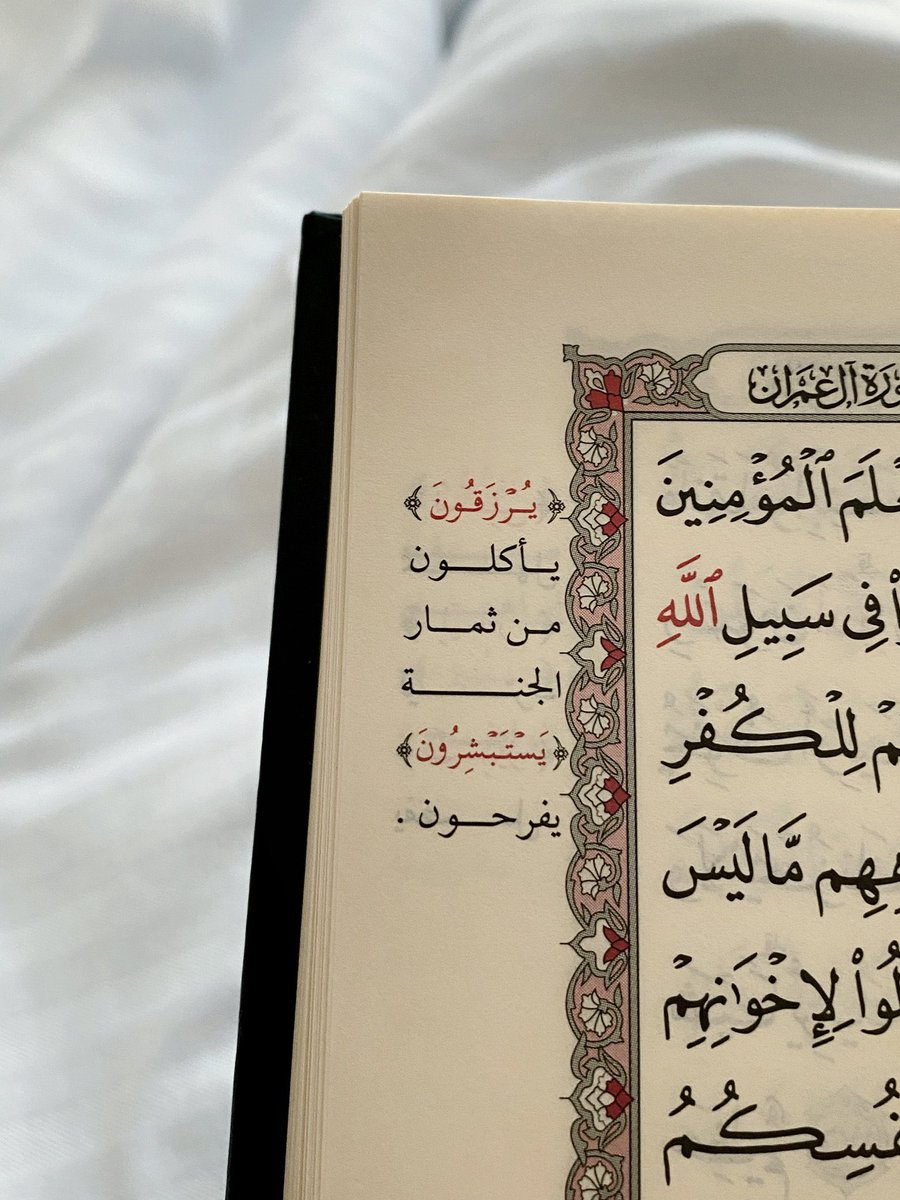 آلِ عِمْرَانَ
ٱلْمُؤْمِنِينَ
فِي سَبِيلِ ٱللَّهِ
لِلْكُفْرِ
مَّا لَيْسَ
لِإِخْوَٰنِهِمْ
﴿يُرْزَقُونَ﴾
يأكلون
من ثمار
الجنة
﴿يَسْتَبْشِرُونَ﴾
يفرحون .